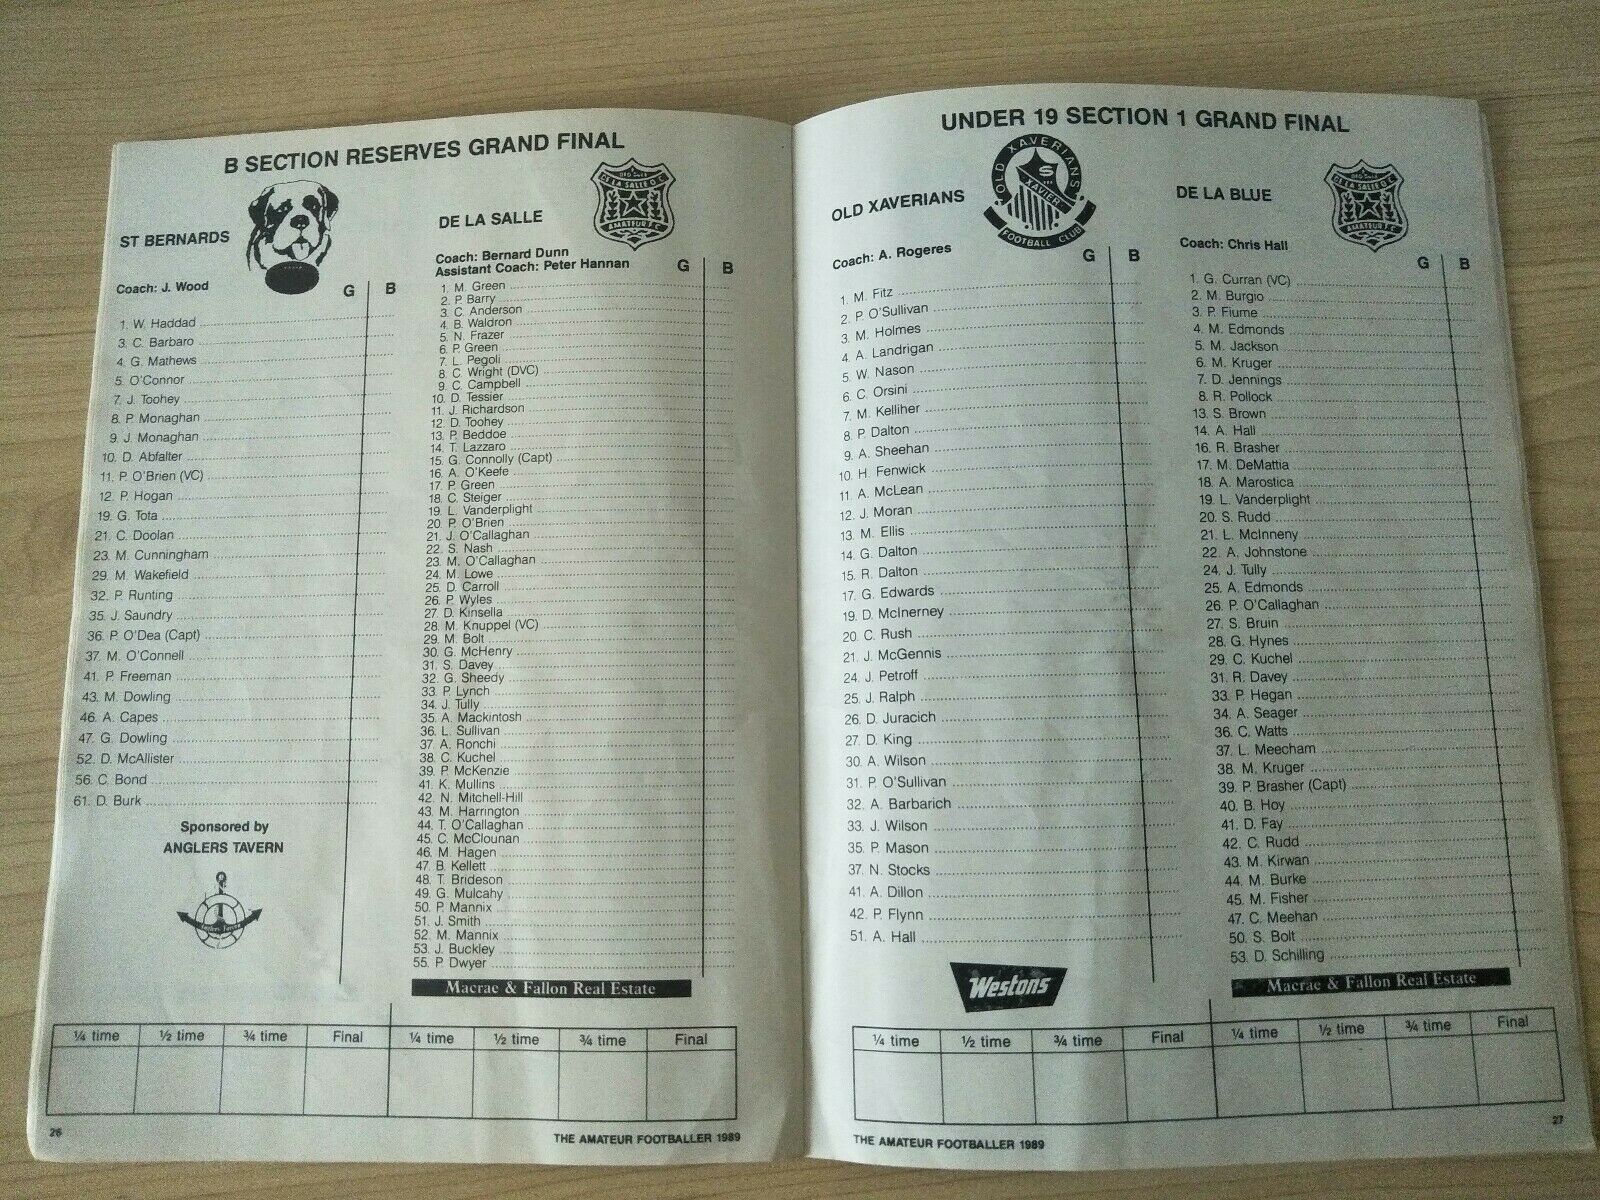 B SECTION RESERVES GRAND FINAL
ST BERNARDS
Coach: J. Wood
G B
1. W. Haddad
3. C. Barbaro
4. G. Mathews
5. O'Connor
7. J. Toohey
8. P. Monaghan
9. J. Monaghan
10. D. Abfalter
11. P. O'Brien (VC)
12. P. Hogan
19. G. Tota
21. C. Doolan
23. M. Cunningham
29. M. Wakefield
32. P. Runting
35. J. Saundry
36. P. O'Dea (Capt)
37. M. O'Connell
41. P. Freeman
43. M. Dowling
46. A. Capes
47. G. Dowling
52. D. McAllister
56. C. Bond
61. D. Burk
Sponsored by
ANGLERS TAVERN
Anglers Tavern
DE LA SALLE
DE LA SALLE O.C.
AMATEUR F.C
Coach: Bernard Dunn
Assistant Coach: Peter Hannan
G B
1. M. Green
2. P. Barry
3. C. Anderson
4. B. Waldron
5. N. Frazer
6. P. Green
7. L. Pegoli
8. C. Wright (DVC)
9. C. Campbell
10. D. Tessier
11. J. Richardson
12. D. Toohey
13. P. Beddoe
14. T. Lazzaro
15. G. Connolly (Capt)
16. A. O'Keefe
17. P. Green
18. C. Steiger
19. L. Vanderplight
20. P. O'Brien
21. J. O'Callaghan
22. S. Nash
23. M. O'Callaghan
24. M. Lowe
25. D. Carroll
26. P. Wyles
27. D. Kinsella
28. M. Knuppel (VC)
29. M. Bolt
30. G. McHenry
31. S. Davey
32. G. Sheedy
33. P. Lynch
34. J. Tully
35. A. Mackintosh
36. L. Sullivan
37. A. Ronchi
38. C. Kuchel
39. P. McKenzie
41. K. Mullins
42. N. Mitchell-Hill
43. M. Harrington
44. T. O'Callaghan
45. C. McClounan
46. M. Hagen
47. B. Kellett
48. T. Brideson
49. G. Mulcahy
50. P. Mannix
51. J. Smith
52. M. Mannix
53. J. Buckley
55. P. Dwyer
Macrae & Fallon Real Estate
¼ time ½ time ¾ time Final ¼ time ½ time ¾ time Final
26
THE AMATEUR FOOTBALLER 1989
UNDER 19 SECTION 1 GRAND FINAL
OLD XAVERIANS
OLD XAVERIANS
XAVIER
FOOTBALL CLUB
Coach: A. Rogeres
G B
1. M. Fitz
2. P. O'Sullivan
3. M. Holmes
4. A. Landrigan
5. W. Nason
6. C. Orsini
7. M. Kelliher
8. P. Dalton
9. A. Sheehan
10. H. Fenwick
11. A. McLean
12. J. Moran
13. M. Ellis
14. G. Dalton
15. R. Dalton
17. G. Edwards
19. D. McInerney
20. C. Rush
21. J. McGennis
24. J. Petroff
25. J. Ralph
26. D. Juracich
27. D. King
30. A. Wilson
31. P. O'Sullivan
32. A. Barbarich
33. J. Wilson
35. P. Mason
37. N. Stocks
41. A. Dillon
42. P. Flynn
51. A. Hall
Westons
DE LA BLUE
DE LA SALLE O.C.
AMATEUR F.C
Coach: Chris Hall
G B
1. G. Curran (VC)
2. M. Burgio
3. P. Fiume
4. M. Edmonds
5. M. Jackson
6. M. Kruger
7. D. Jennings
8. R. Pollock
13. S. Brown
14. A. Hall
16. R. Brasher
17. M. DeMattia
18. A. Marostica
19. L. Vanderplight
20. S. Rudd
21. L. McInneny
22. A. Johnstone
24. J. Tully
25. A. Edmonds
26. P. O'Callaghan
27. S. Bruin
28. G. Hynes
29. C. Kuchel
31. R. Davey
33. P. Hegan
34. A. Seager
36. C. Watts
37. L. Meecham
38. M. Kruger
39. P. Brasher (Capt)
40. B. Hoy
41. D. Fay
42. C. Rudd
43. M. Kirwan
44. M. Burke
45. M. Fisher
47. C. Meehan
50. S. Bolt
53. D. Schilling
Macrae & Fallon Real Estate
¼ time ½ time ¾ time Final ¼ time ½ time ¾ time Final
THE AMATEUR FOOTBALLER 1989
27